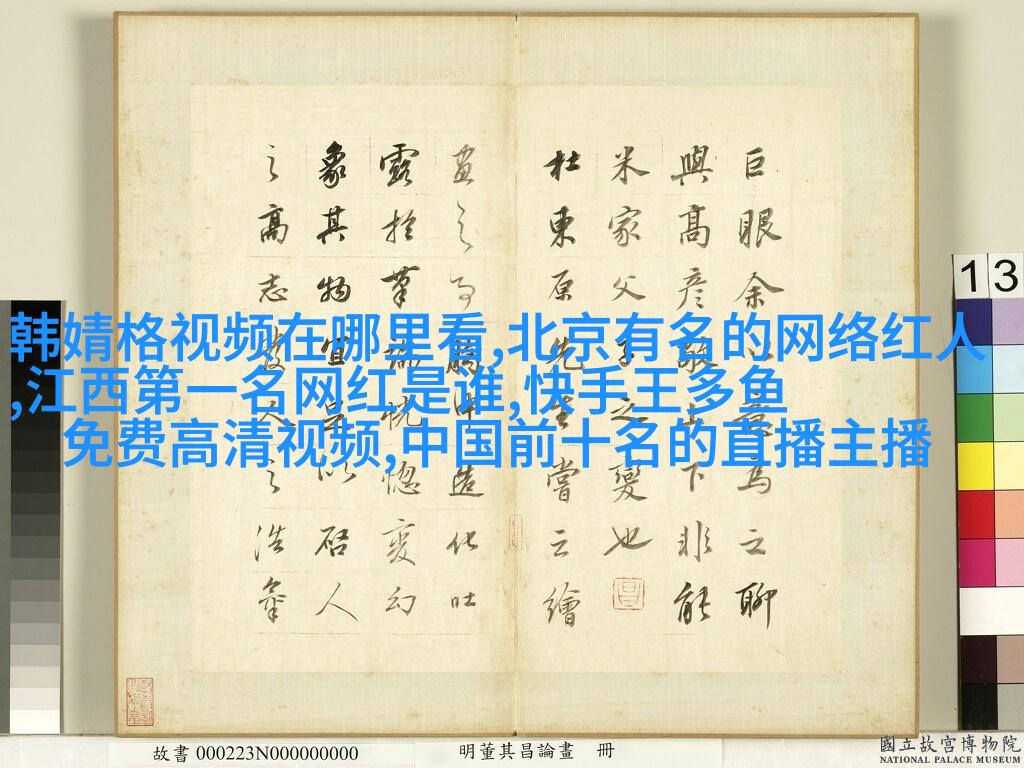 韩婧格视频在哪里看,北京有名的网络红人
,江西第一名网红是谁,快手王多鱼
免费高清视频,中国前十名的直播主播
巨眼余為之聊
與高彦敬上下非能
米家父子之變也
杜東原先生嘗云繪
畫之為造化吐
露於筆端恍惚變幻
象其物宜足以啟人
之高志發人之浩氣
13
故書 000223N000000000
明董其昌論畫 冊
國立故宮博物院
NATIONAL PALACE MUSEUM